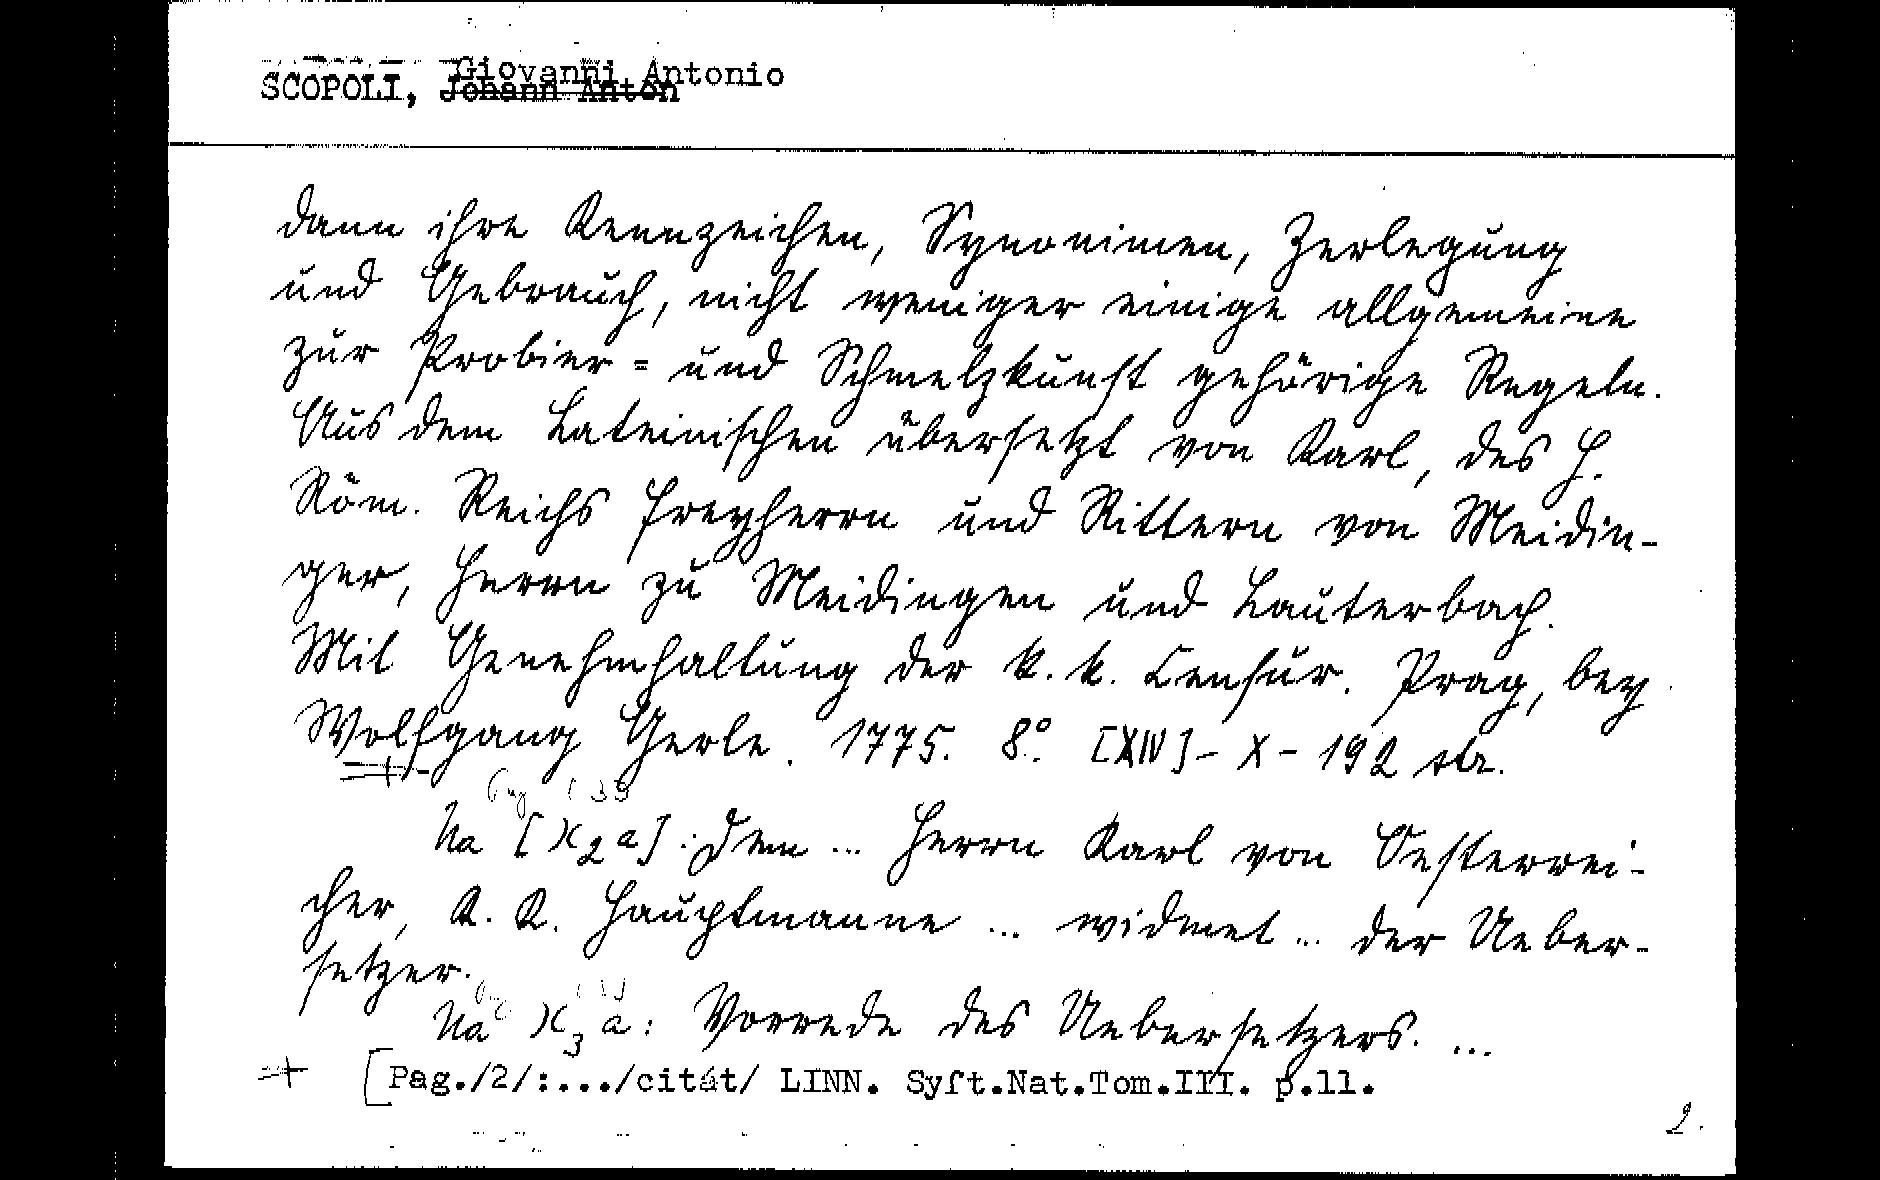 Giovanni Antonio
SCOPOLI, Johann Anton
dann ihre Kennzeichen, Synonimen, Zerlegung
und Gebrauch, nicht weniger einige allgemeine
zur Probier= und Schmelzkunst gehörige Regeln.
Aus dem Lateinischen übersetzt von Karl, des H.
Röm. Reichs Freyherrn und Rittern von Meidin-
ger, Herrn zu Meidingen und Lauterbach.
Mit Genehmhaltung der k. k. Censur. Prag, bey
Wolfgang Gerle. 1775. 8° [XIV]-X-192 str.
Na [)(2a]: Dem ... Herrn Karl von Oesterrei-
cher, K. K. Hauptmanne ... widmet ... der Ueber-
setzer.
Na )(3a: Vorrede des Uebersetzers. ...
[Pag./2/:.../citát/ LINN. Syſt.Nat.Tom.III. p.11.
2.